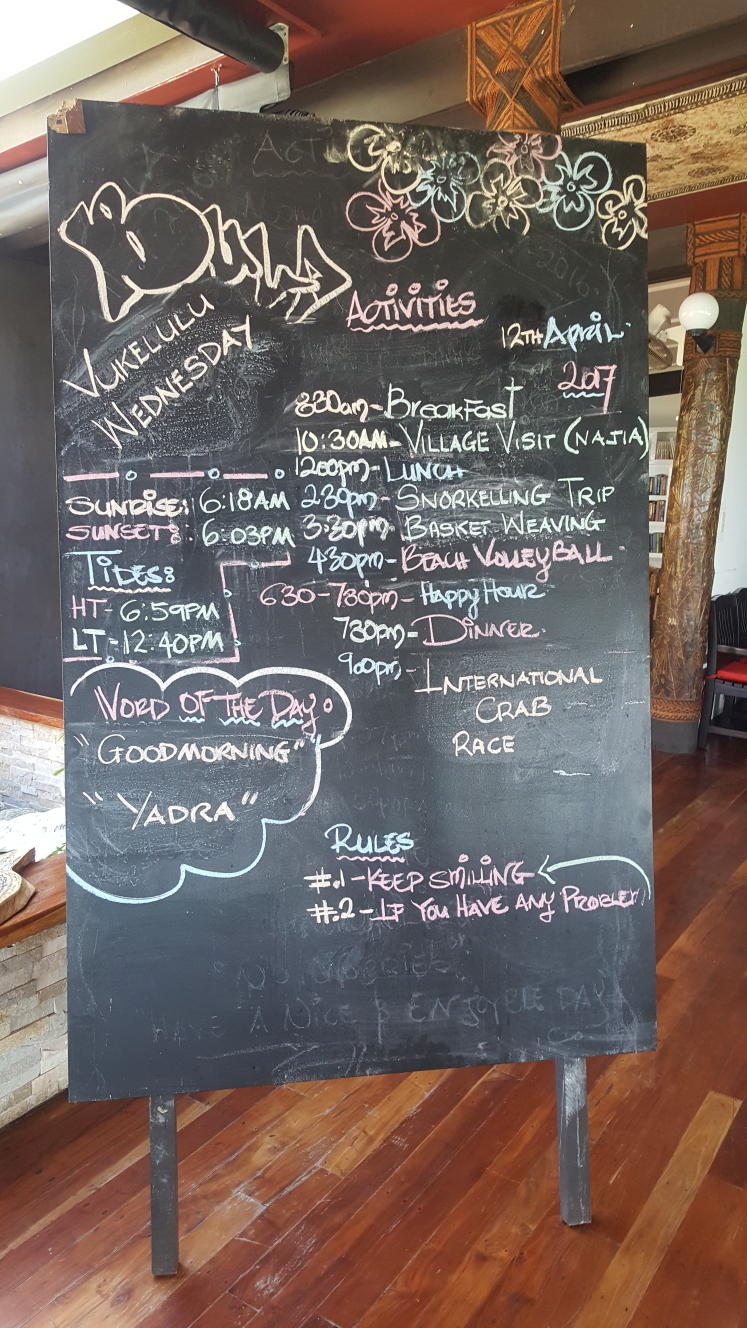 BULA
VUKELULU
WEDNESDAY
ACTIVITIES
12TH April
2017
830am - BreakFast
10:30AM - VILLAGE VISIT (NAJIA)
1200pm - LUNCH
2:30pm - SNORKELLING TRIP
3:30pm - BASKET WEAVING
430pm - BEACH VOLLEYBALL
630-730pm - Happy Hour
730pm - DINNER
900pm - INTERNATIONAL
CRAB
RACE
SUNRISE: 6:18AM
SUNSET: 6:03PM
TIDES:
HT - 6:59PM
LT - 12:40PM
WORD OF THE DAY:
"GOODMORNING"
"YADRA"
RULES
#.1 - KEEP SMILING
#.2 - IF YOU HAVE ANY PROBLEM
HAVE A NICE & ENJOYBLE DAY